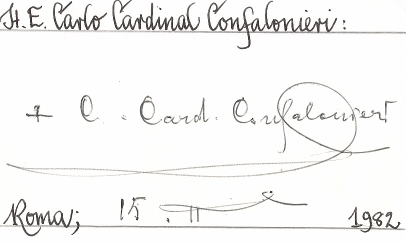 H.E. Carlo Cardinal Confalonieri:
+ C. Card. Confalonieri
Roma; 15. II 1982